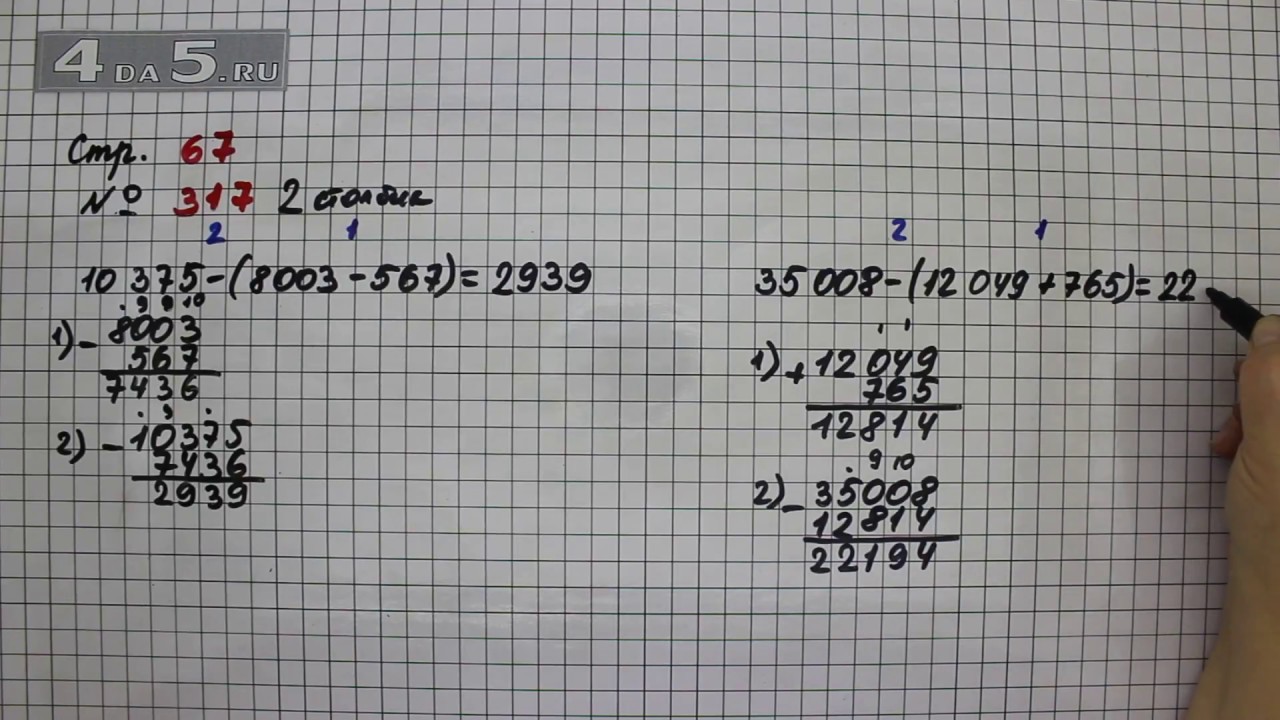 4DA5.RU
Стр. 67
№ 317 2 столбик
2 1
10 375-(8003-567)=2939
. 9 9 10
1) - 8003
567
7436
. 9 .
2) - 10375
7436
2939
2 1
35 008-(12 049+765)=22
1 1
1) + 12 049
765
12814
. 9 10
2) - 35008
12814
22194